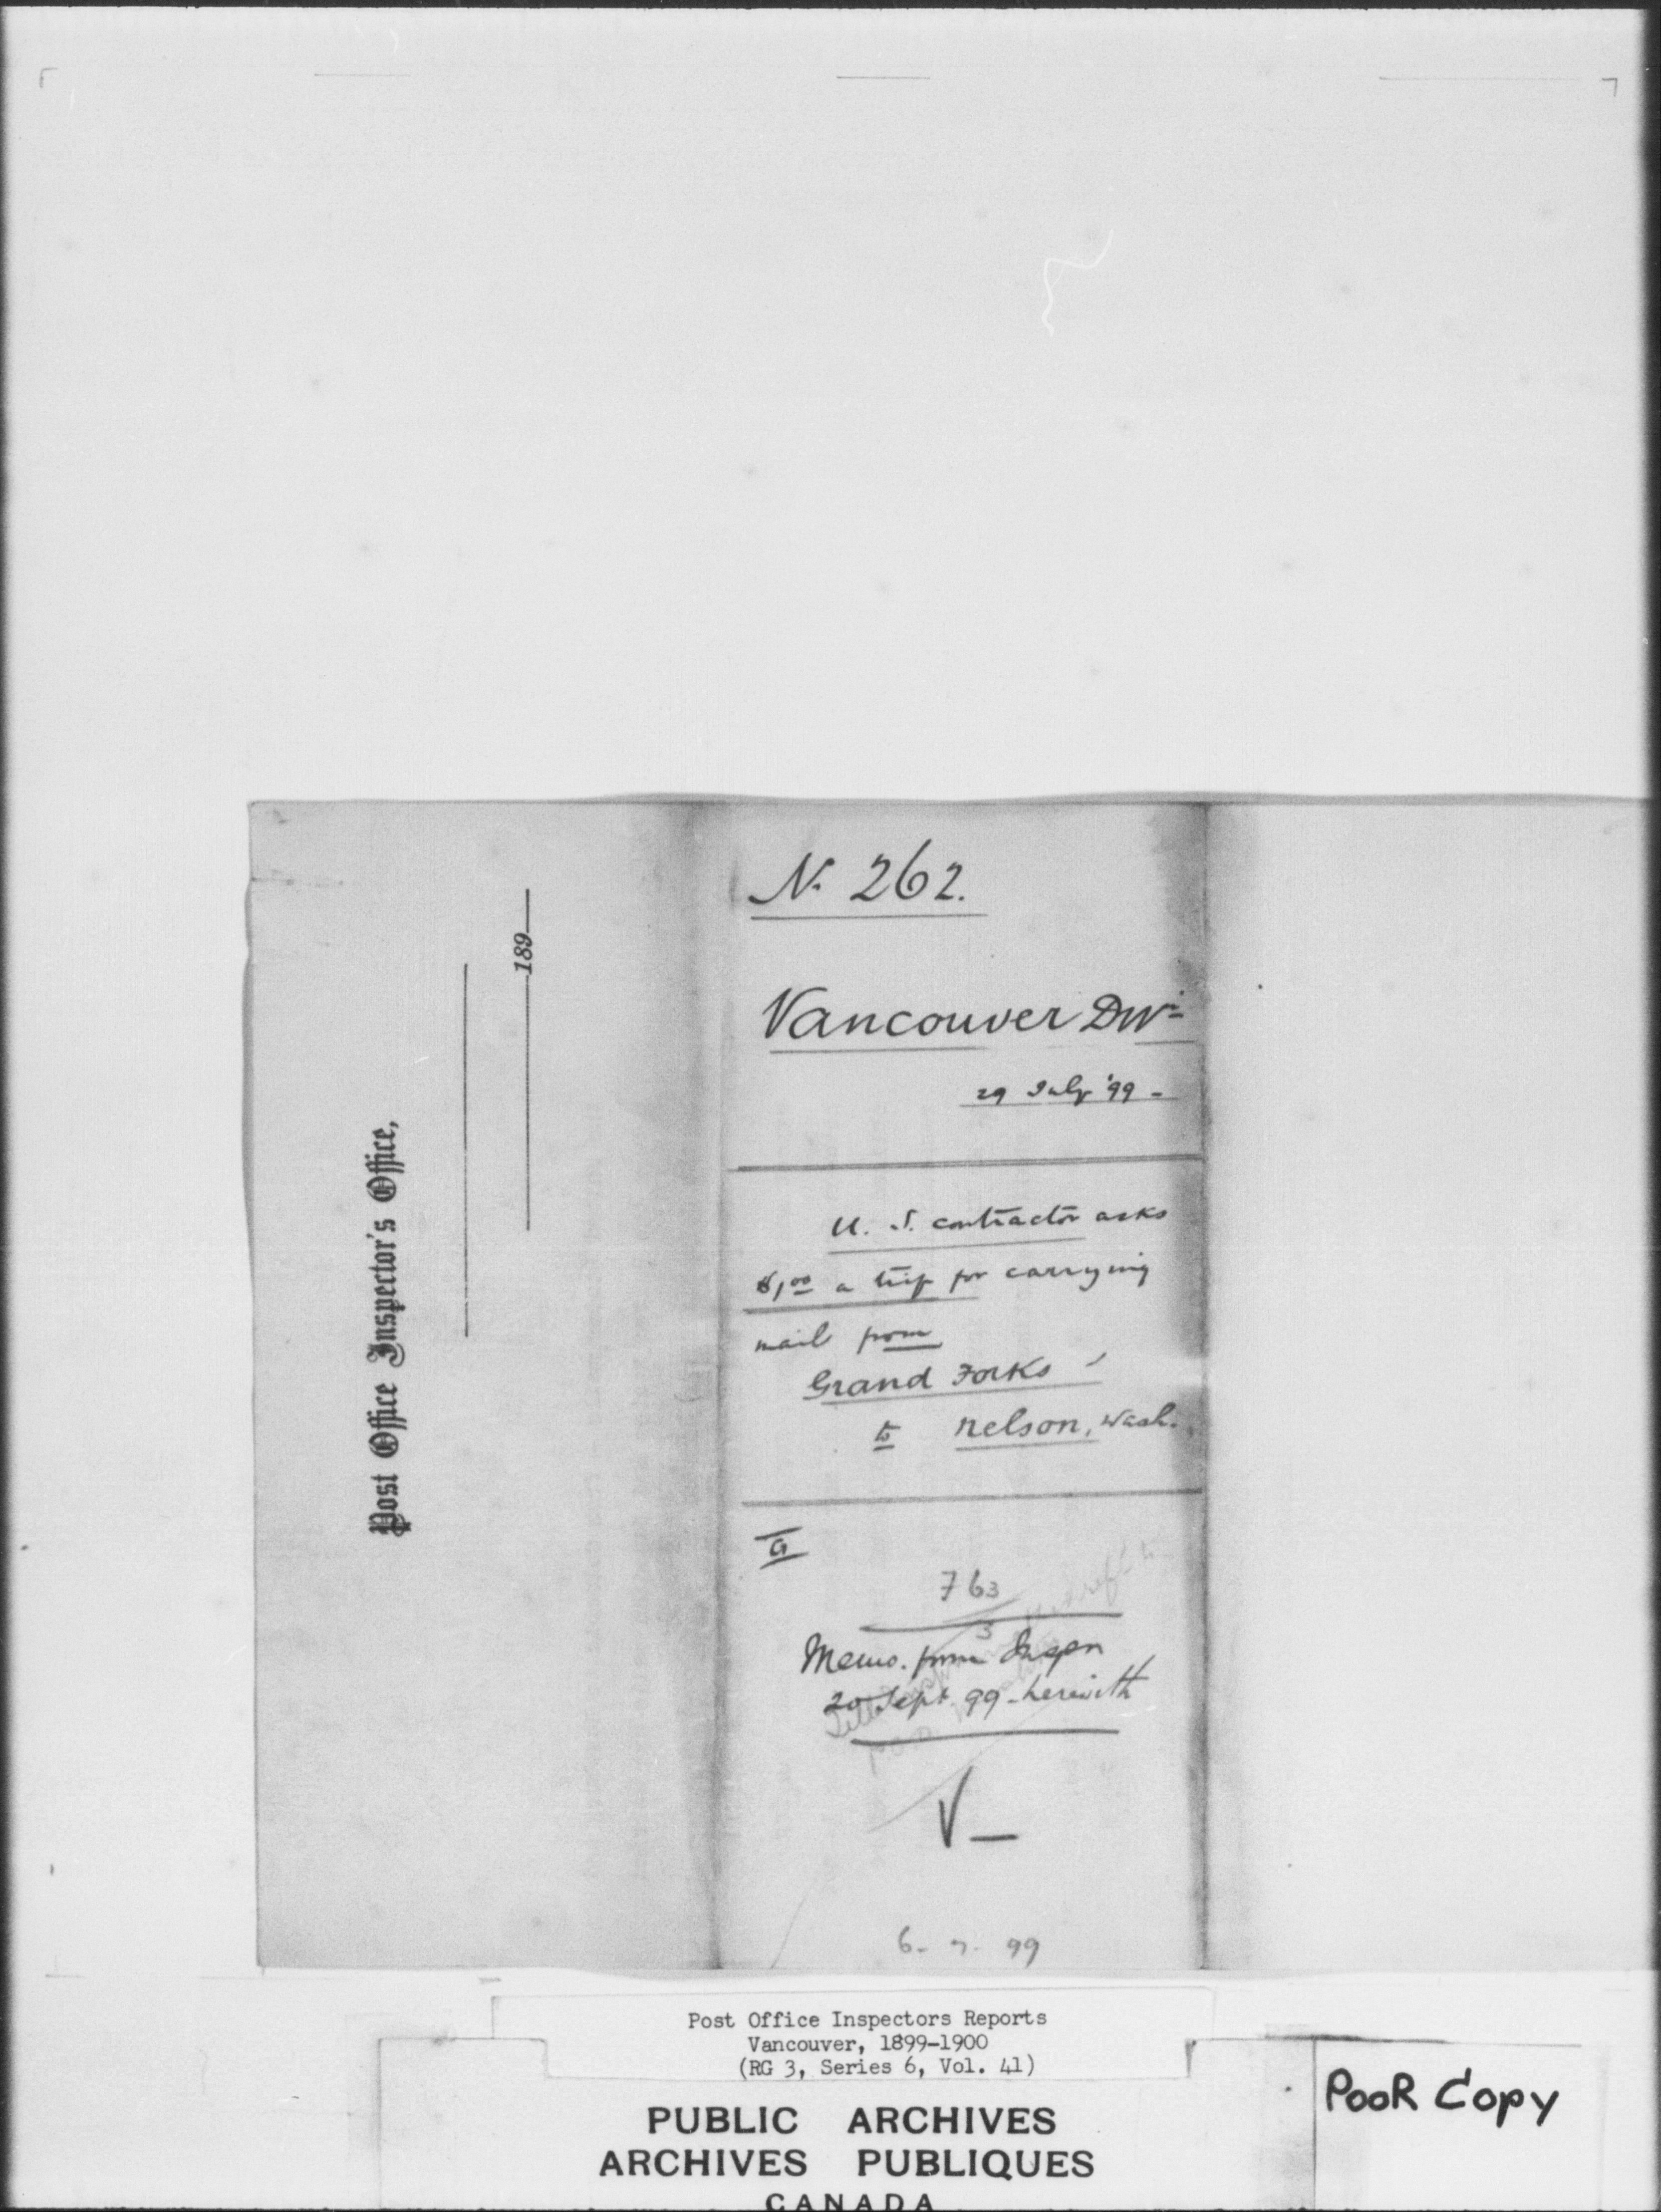 Post Office Inspector's Office,
189
N. 262.
Vancouver Divn
29 July '99 -
U. S. contractor asks
$1.00 a trip for carrying
mail from
Grand Forks
to Nelson, Wash.
G
763
3
Memo. from Inspr
20 Sept. 99 - herewith
V
6 - 7 - 99
Post Office Inspectors Reports
Vancouver, 1899-1900
(RG 3, Series 6, Vol. 41)
PUBLIC ARCHIVES
ARCHIVES PUBLIQUES
CANADA
POOR COPY